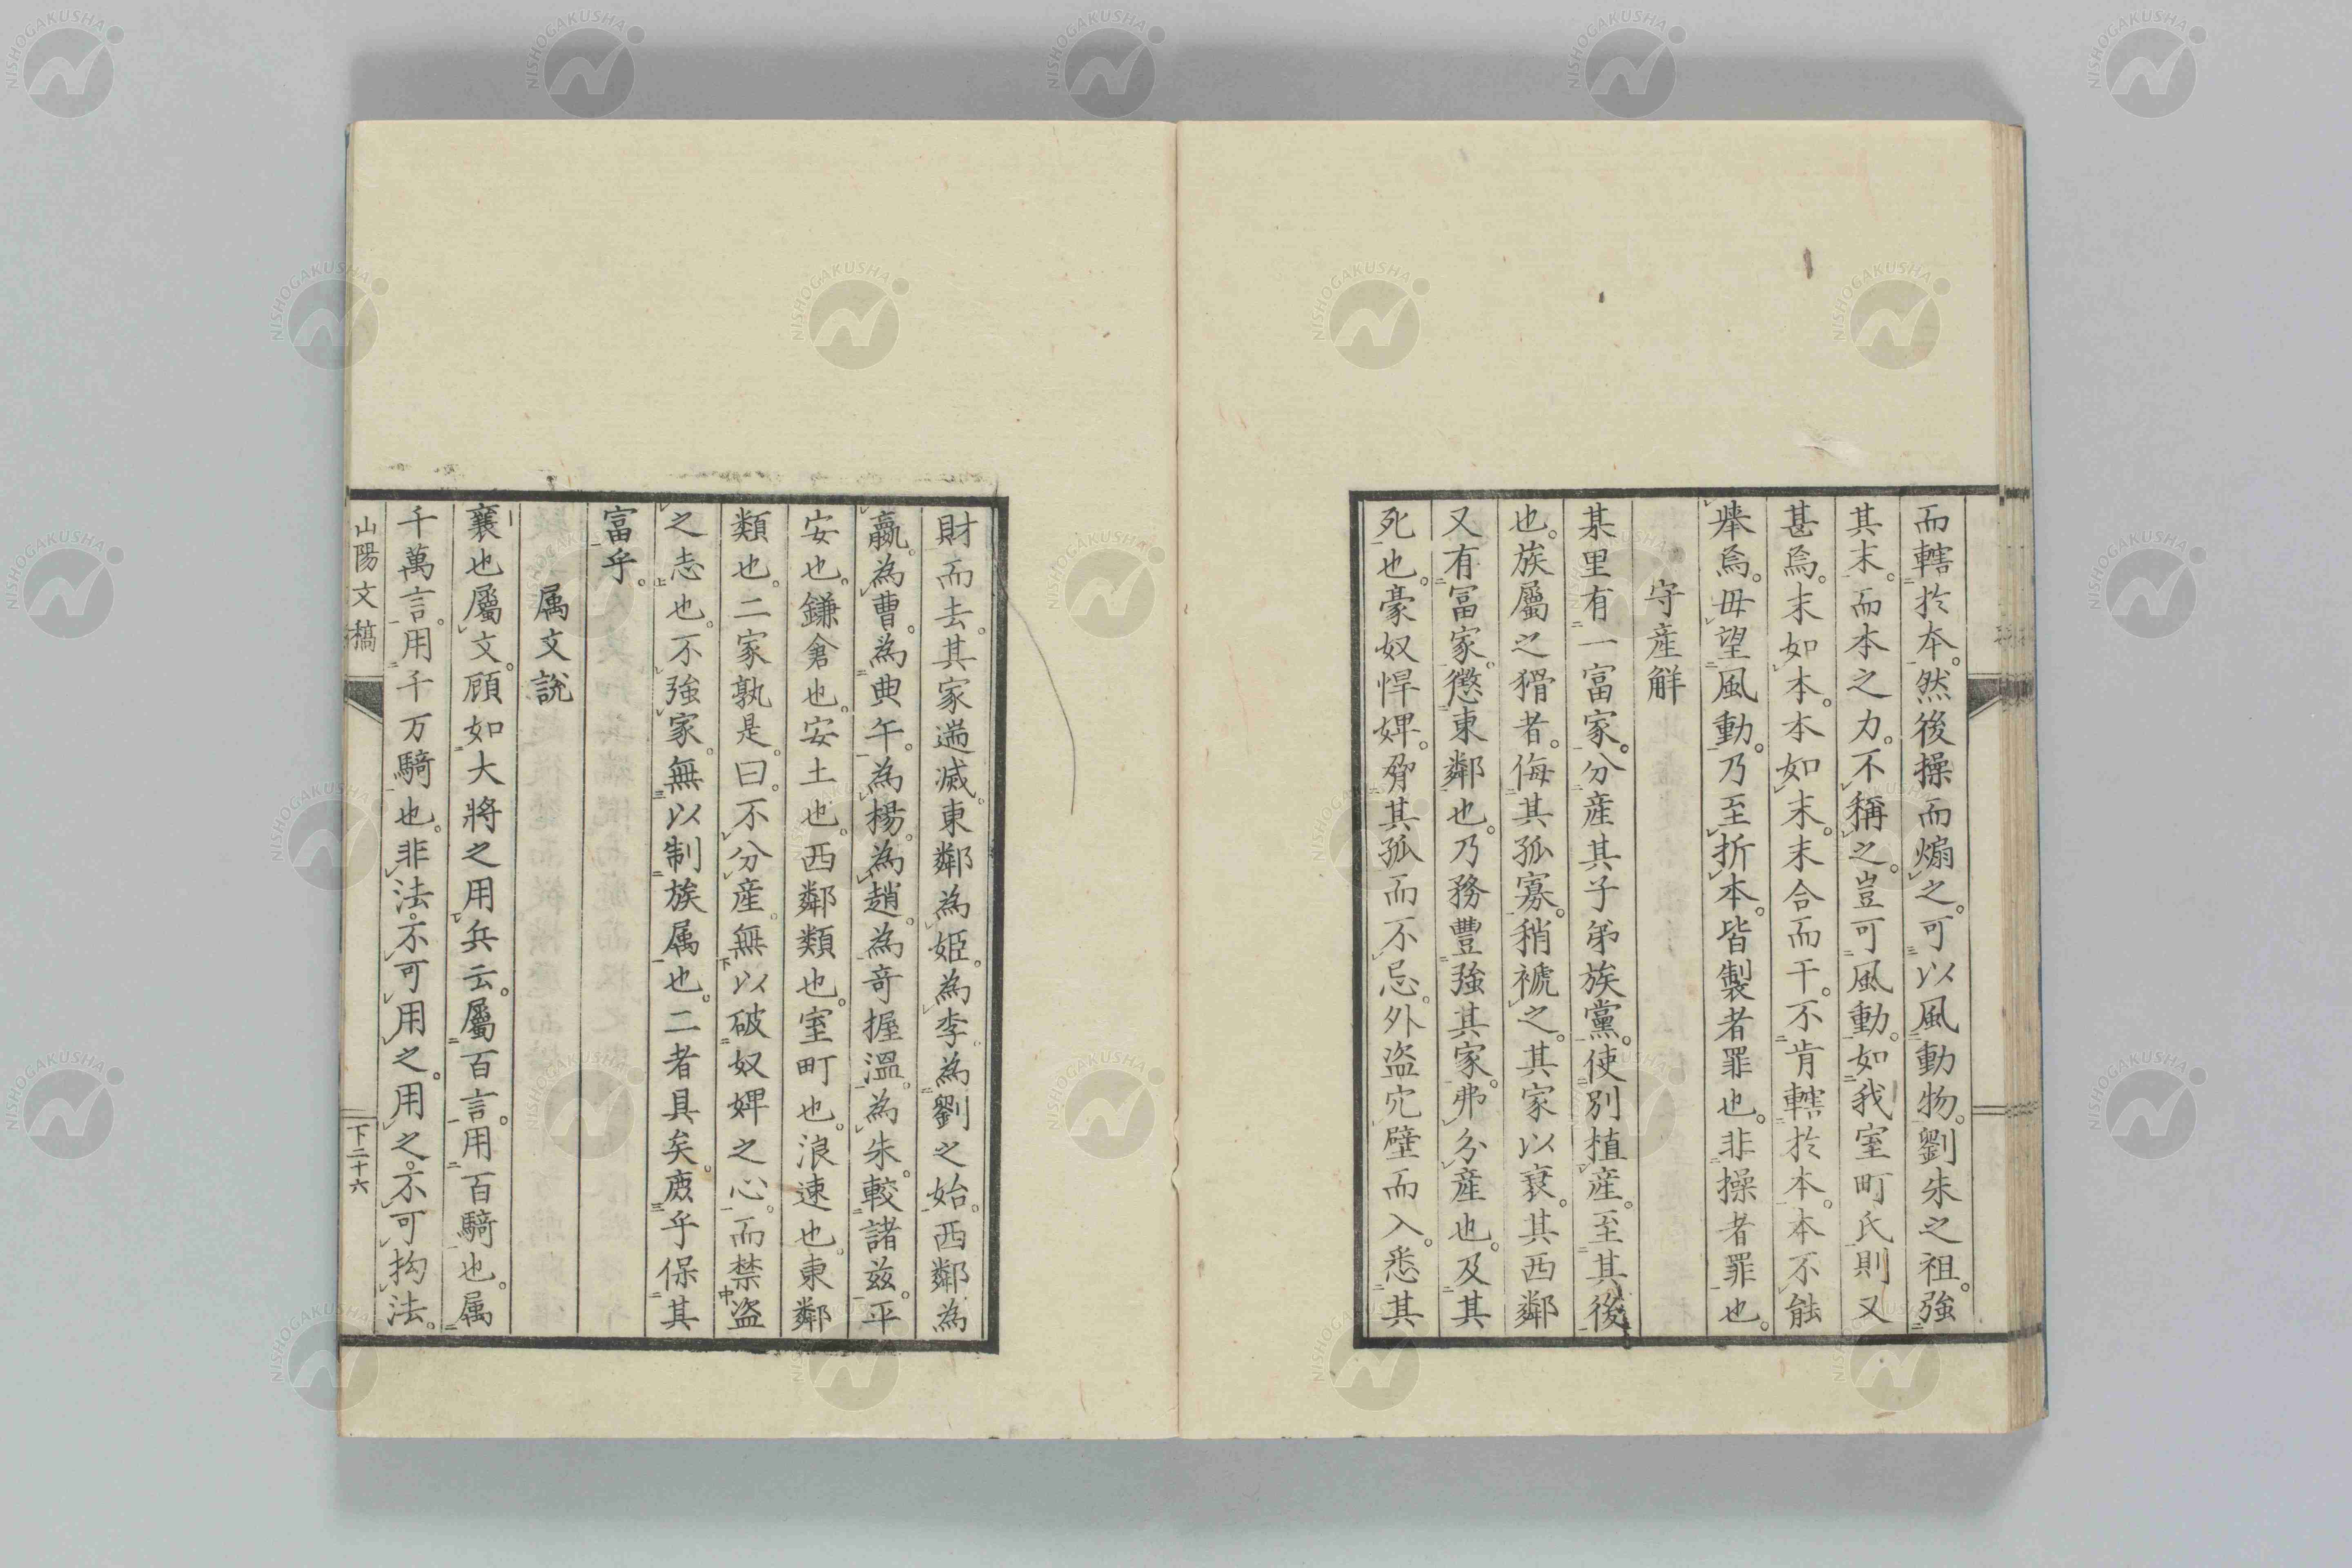 而轄於本。然後操而煽之。可以風動物。劉朱之祖。強
其末。而本之力。不稱之。豈可風動。如我室町氏則又
甚焉。末如本。本如末。末合而干。不肯轄於本。本不能
犇焉。毋望風動。乃至折本。皆製者罪也。非操者罪也。
守産觧
某里有一富家。分産其子弟族黨。使別植産。至其後
也。族屬之猾者。侮其孤寡。稍褫之。其家以衰。其西鄰
又有冨家。懲東鄰也。乃務豐強其家。弗分産也。及其
死也。豪奴悍婢。脅其孤而不忌。外盗穴壁而入。悉其
財而去。其家遄滅。東鄰為姫。為李。為劉之始。西鄰為
嬴。為曹。為典午。為楊。為趙。為奇握溫。為朱。較諸茲。平
安也。鎌倉也。安土也。西鄰類也。室町也。浪速也。東鄰
類也。二家孰是。曰。不分産。無以破奴婢之心。而禁盗
之志也。不強家。無以制族属也。二者具矣。庻乎保其
富乎。
属文説
襄也屬文。顧如大將之用兵云。屬百言。用百騎也。属
千萬言。用千万騎也。非法。不可用之。用之。不可拘法。
山陽文稿
下二十六
NISHOGAKUSHA